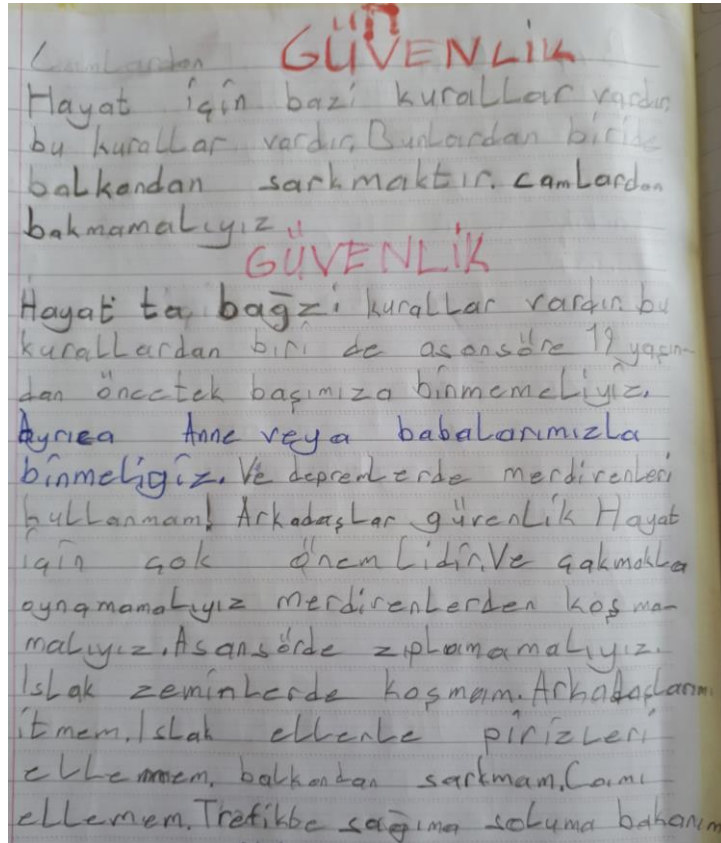 GÜVENLİK
Camlardan
Hayat için bazi kurallar vardır
bu kurallar vardır. Bunlardan biride
balkandan sarkmaktır. camlardan
bakmamalıyız
GÜVENLİK
Hayat ta bağzi kurallar vardır bu
kurallardan biri de asansöre 12 yaşın-
dan öncetek başımıza binmemeliyiz.
Ayrıca Anne veya babalarımızla
binmeligiz. Ve depremlerde merdivenleri
kullanmam! Arkadaşlar güvenlik Hayat
için çok önemlidir. Ve çakmakla
oynamamalıyız merdivenlerden koşma-
malıyız. Asansörde zıplamamalıyız.
Islak zeminlerde koşmam. Arkadaşlarımı
itmem. Islak ellerle pirizleri
ellemem. balkondan sarkmam. Camı
ellemem. Trefikbe sağıma soluma bakarım